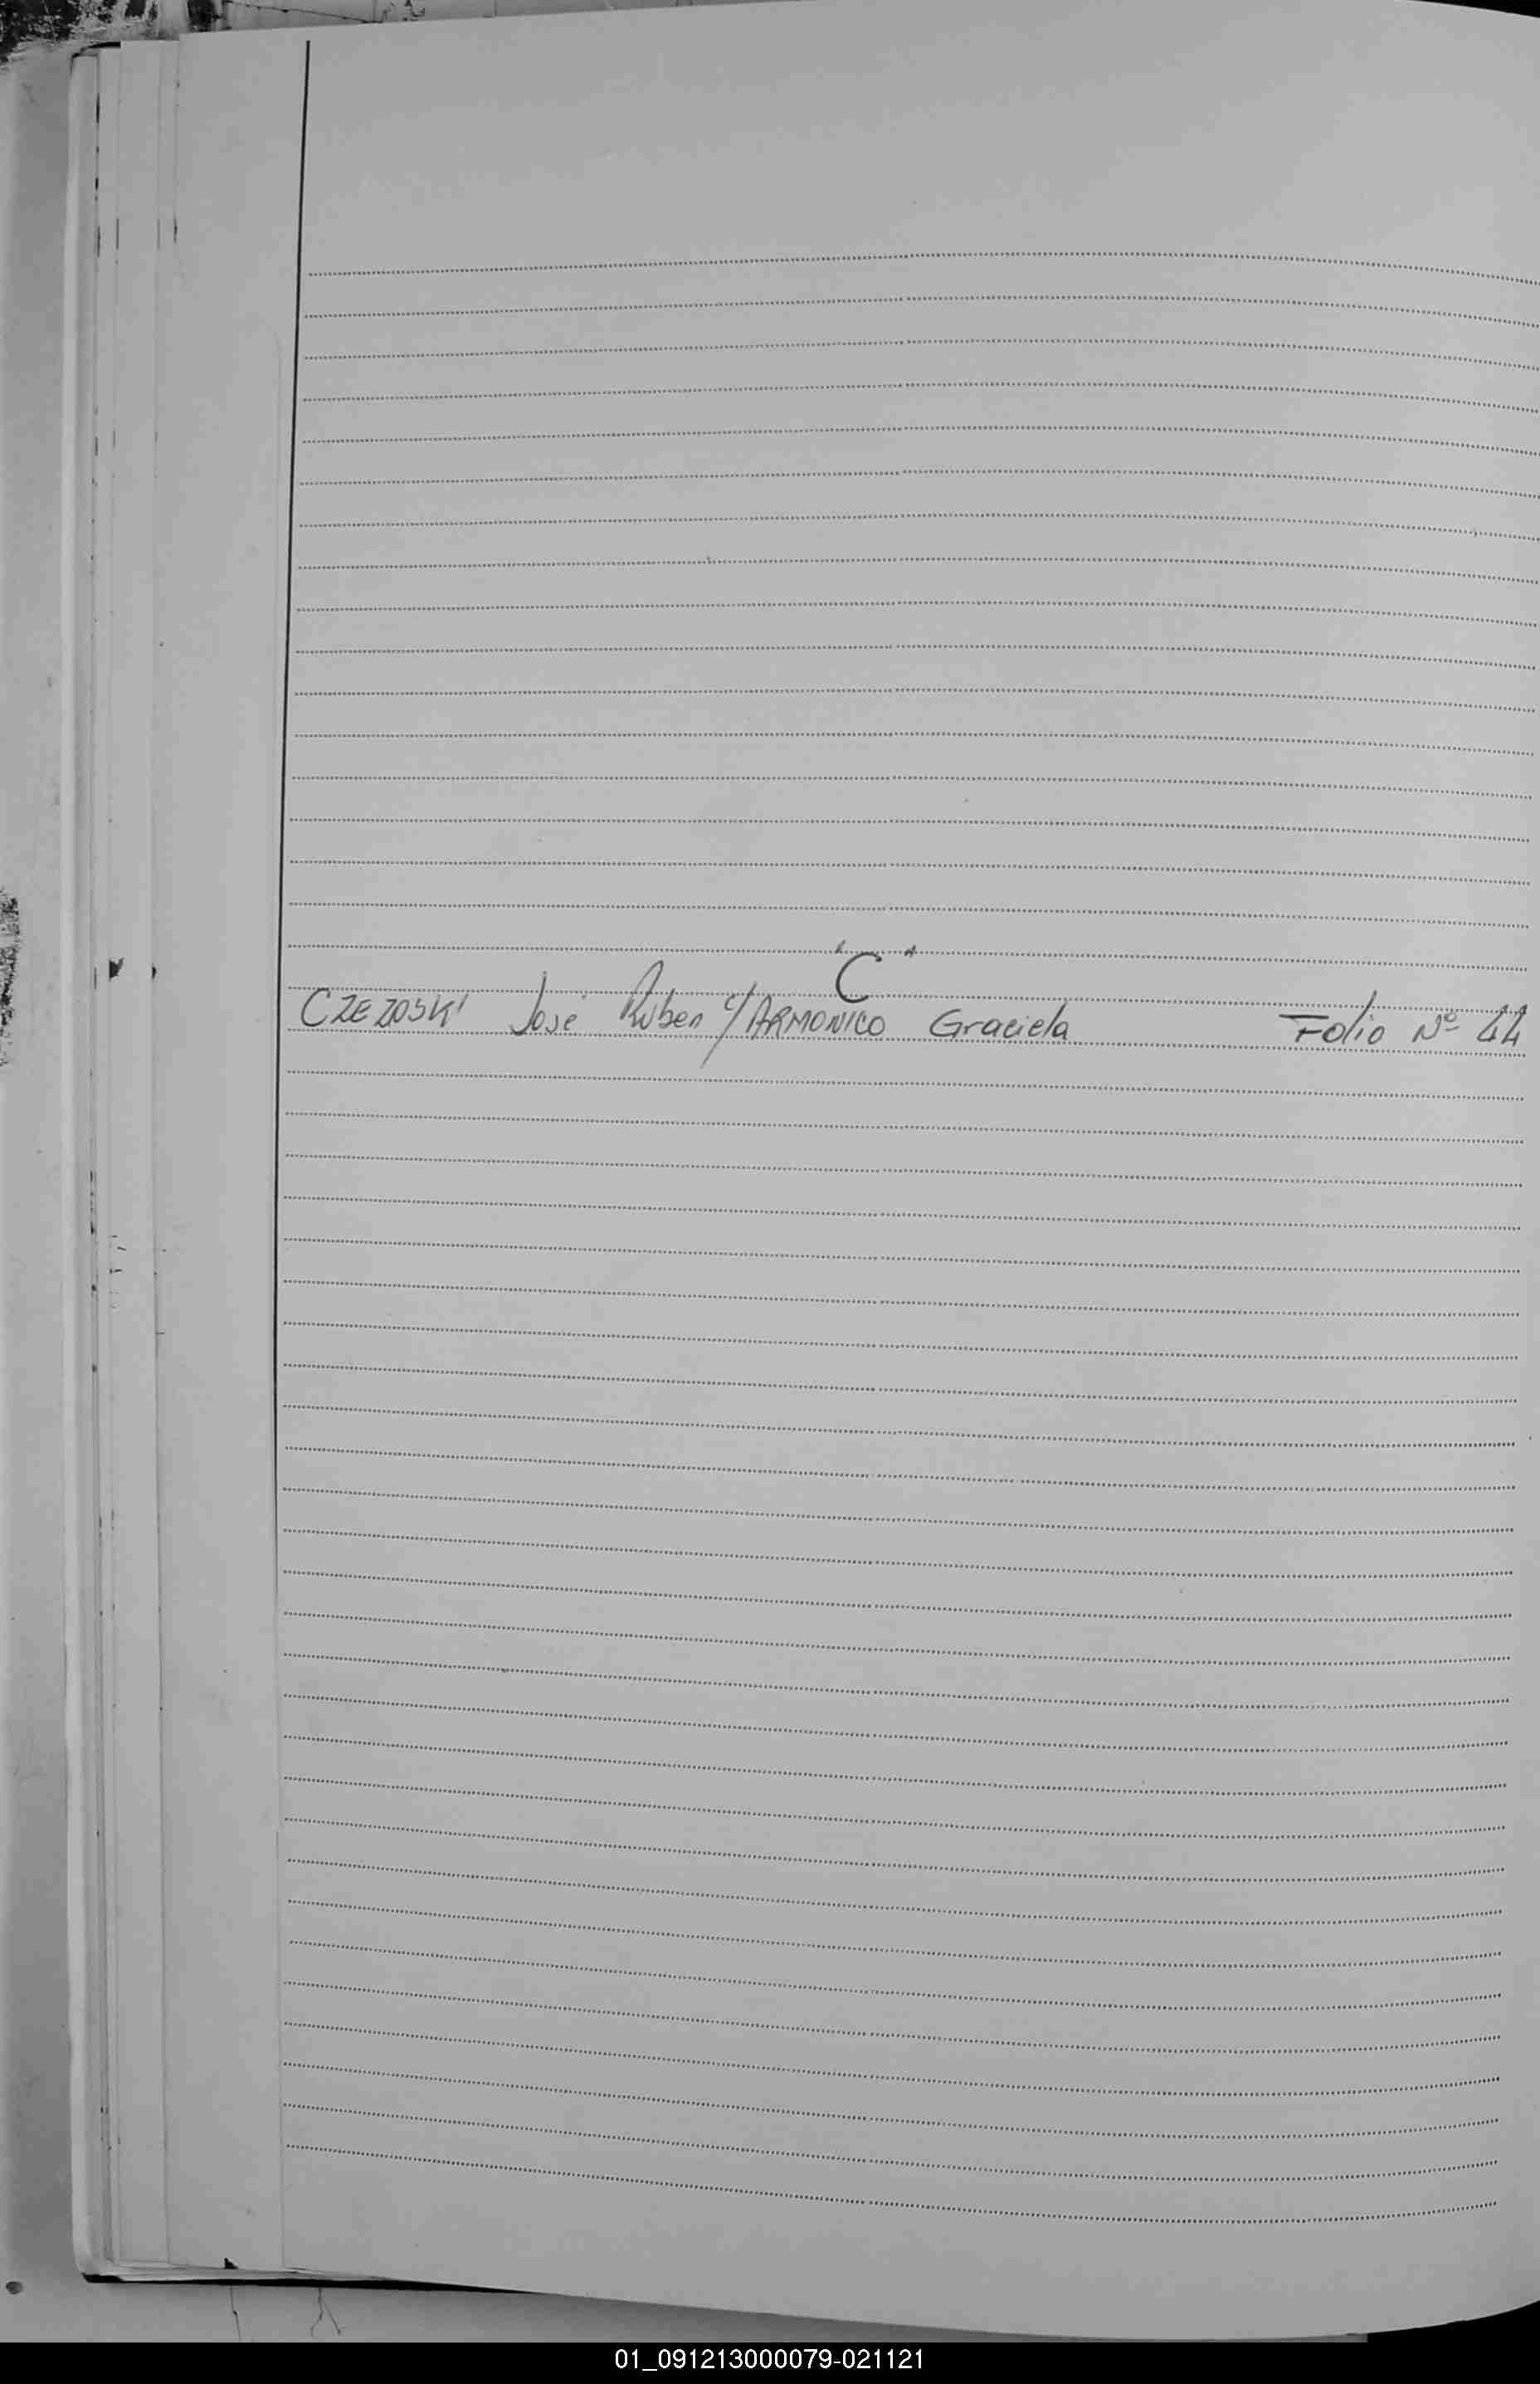 "C"
CZEZOSKI José Ruben c/ ARMONICO Graciela Folio Nº 44
01_091213000079-021121